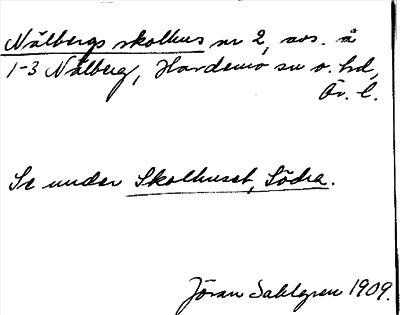 Nålbergs skolhus nr 2, avs. å
1-3 Nålberg, Hardemo sn o. hd,
Ör. l.
Se under Skolhuset, Södra.
Jöran Sahlgren 1909.